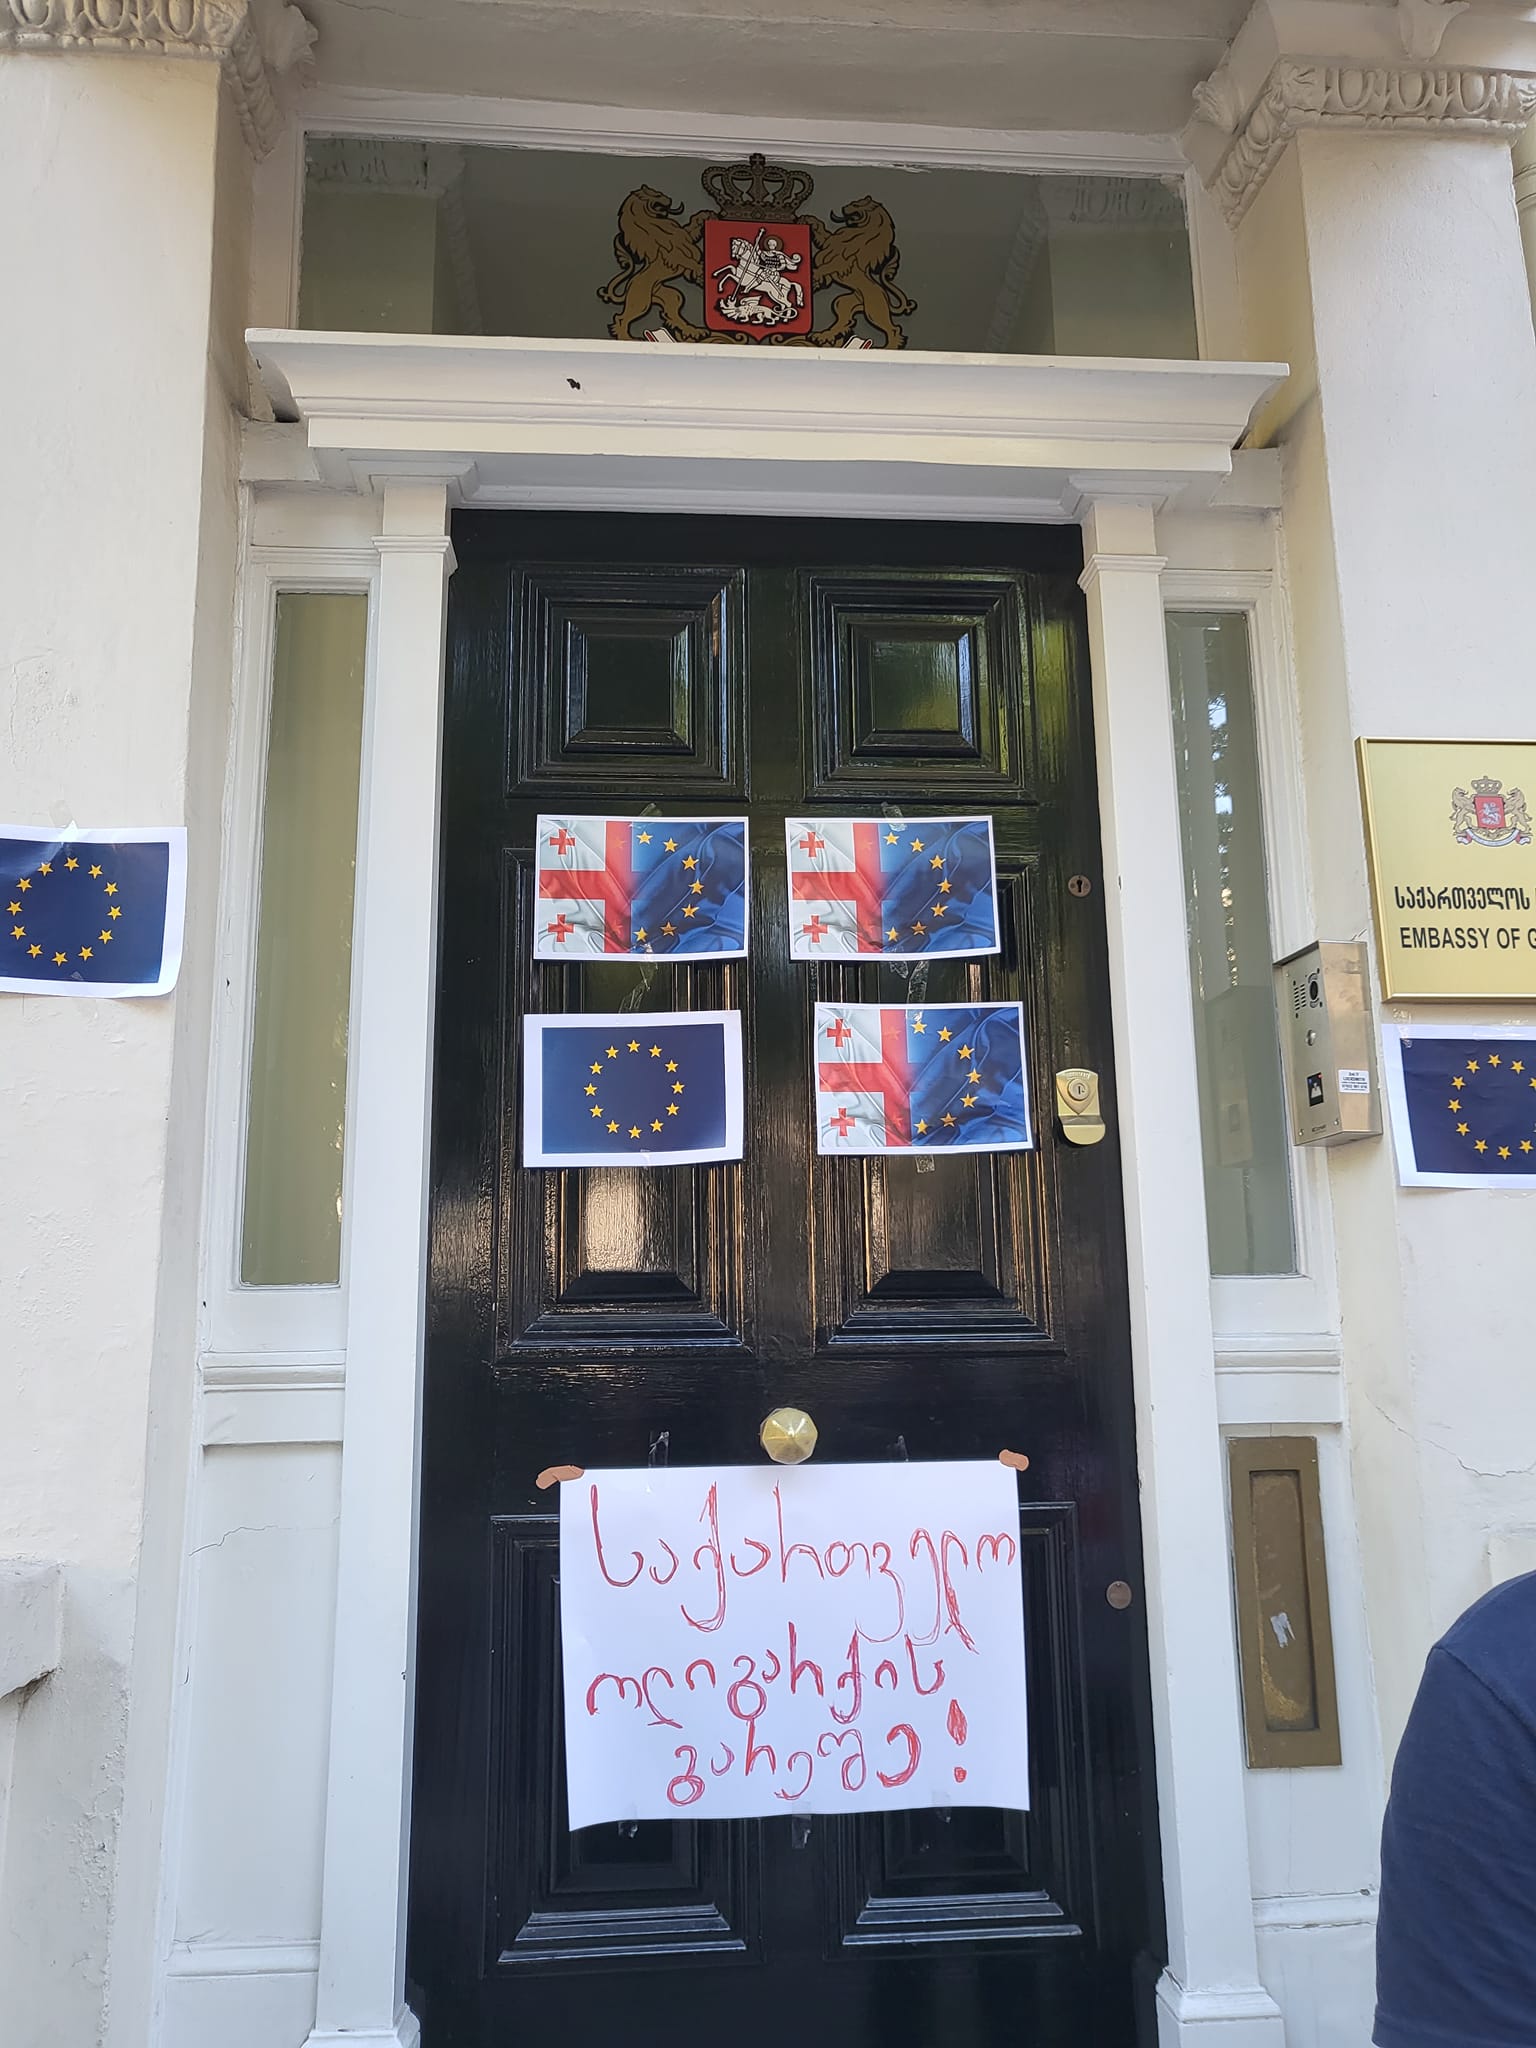 საქართველოს
EMBASSY OF G
საქართველო
ოლიგარქის
გარეშე!